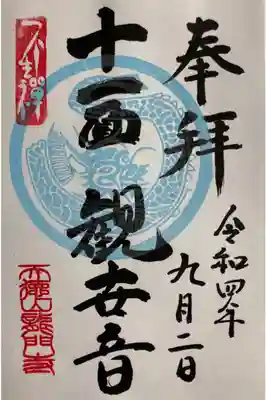 奉拝
令和四年
九月二日
十一面観世音
不生禅
天徳山龍門寺